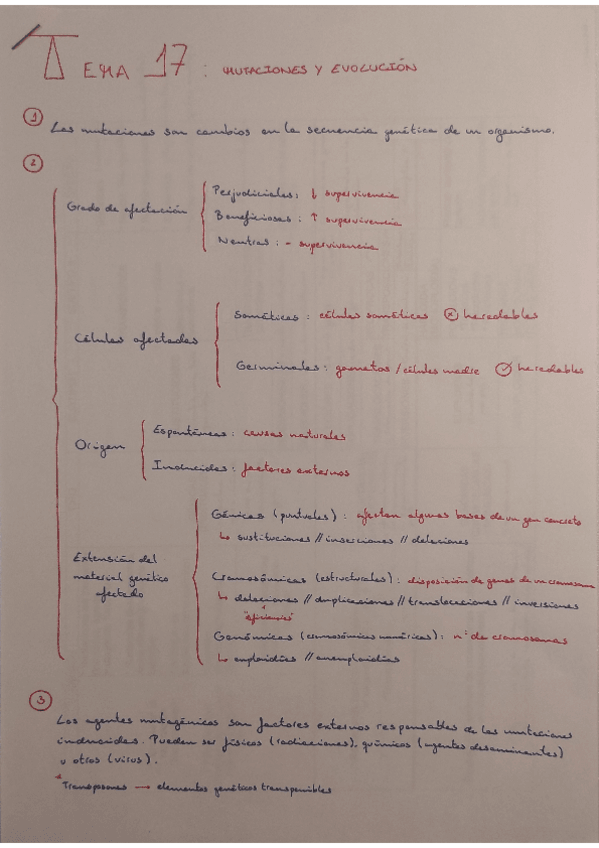 TEMA 17: MUTACIONES Y EVOLUCIÓN
1 Las mutaciones son cambios en la secuencia genética de un organismo.
2
Grado de afectación
Perjudiciales: ↓ supervivencia
Beneficiosas: ↑ supervivencia
Neutras: - supervivencia
Células afectadas
Somáticas: células somáticas ⓧ heredables
Germinales: gametos / células madre ✓ heredables
Origen
Espontáneas: causas naturales
Inducidas: factores externos
Extensión del
material genético
afectado
Génicas (puntuales): afectan algunas bases de un gen concreto
↳ sustituciones // inserciones // deleciones
Cromosómicas (estructurales): disposición de genes de un cromosoma
↳ deleciones // duplicaciones // translocaciones // inversiones
Genómicas (cromosómicas numéricas): nº de cromosomas
↳ euploidías // aneuploidías
3
Los agentes mutagénicos son factores externos responsables de las mutaciones
inducidas. Pueden ser físicos (radiaciones), químicos (agentes desaminantes)
u otros (virus).
*Transposones → elementos genéticos transponibles